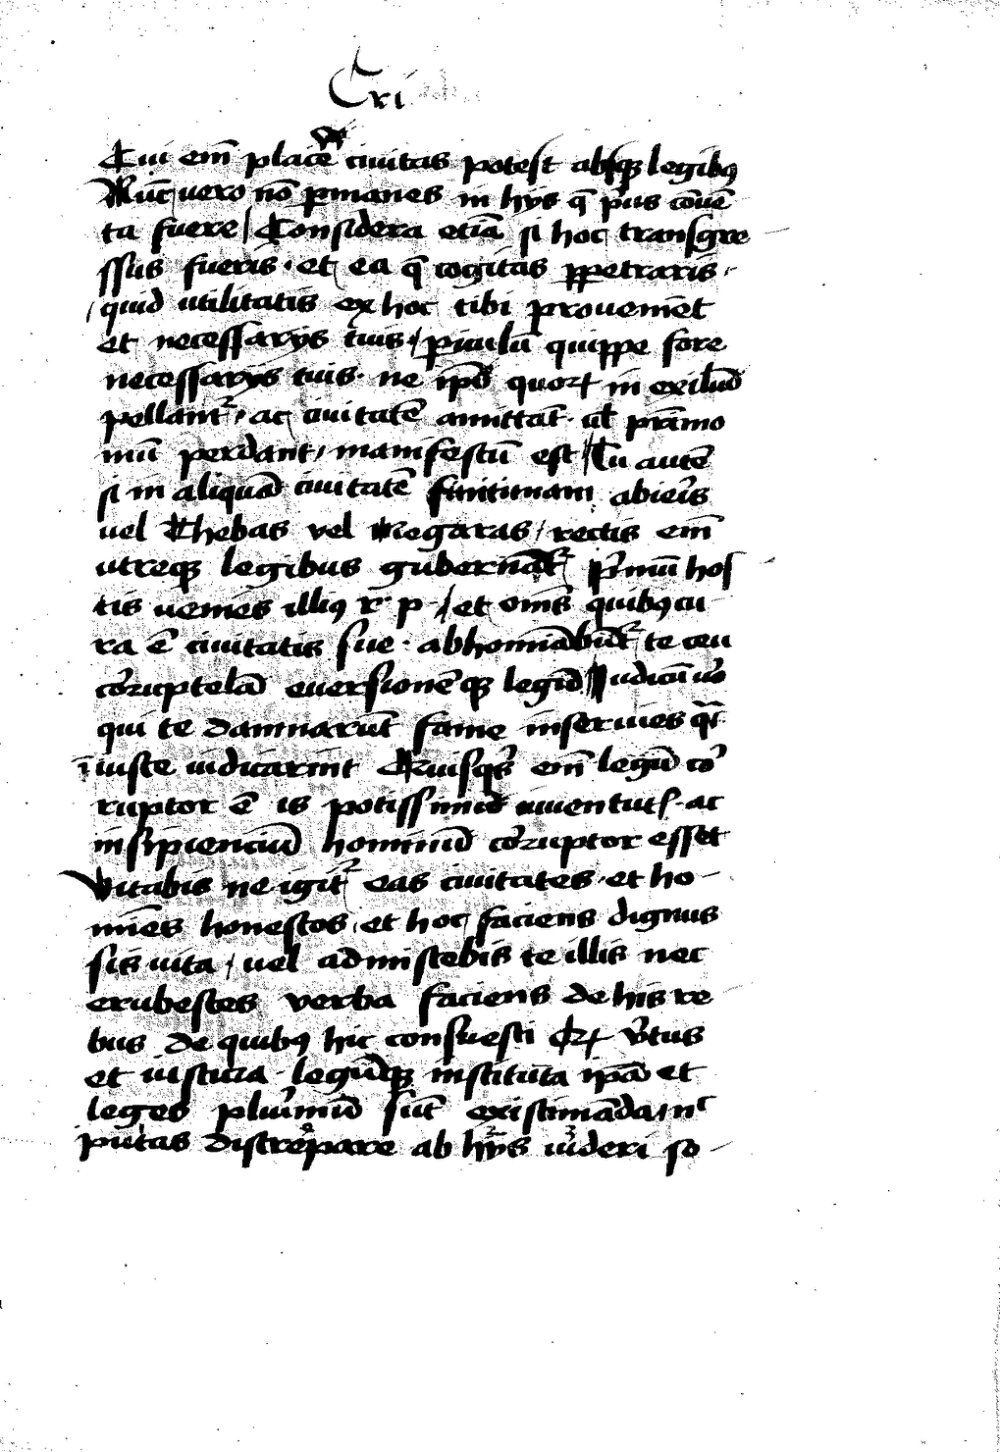 Cri
Cui em̄ place͞r ciuitas potest absq; legibꝰ
Nu͞c vero no͞ p͞manes in hys q͞ p͛us co͞ue͞
ta fuere / Considera etia͞ si hoc transgre
ssus fueris · et ea q͞ cogitas ꝑpetraris ·
quid utilitatis ex hoc tibi proueniet
et necessarys tuis / p͛iculu͞ quippe fore
necessarys tuis · ne ip͞i quoꝝ in exiliu͞
pellant᷑ · ac ciuitate͞ amittant · ul͛ pr͞imo
niu͞ perdant / manifestu͞ est / Tu aute͞
si in aliqua͞ ciuitate͞ finitimam abieris
vel Thebas vel Megaras / rectis em̄
utreq; legibus gubernant᷑ p͛mu͞ hos
tis uenies illiꝰ r͛ p · / et om͞is quibꝰ cu
ra e͞ ciuitatis sue · abhominabunt᷑ te ceu
corruptela͞ euersione͞q; legu͞ Iudiciu͞ u͛o
qui te damnaru͞t fame inseruies q͛i
iniuste iudicarint Quisq͛s em̄ legu͞ cor
ruptor e͞ is potissimu͞ iuuentutꝭ · ac
insipienciu͞ hominu͞ corruptor esset
Vitabis ne igit᷑ eas ciuitates · et ho
mi͞es honestos · et hoc faciens dignus
sis uita / uel admistebis te illis nec
erubestes verba faciens de his re
bus de quibꝰ hic consuesti Qꝝ v͛tus
et iustitia · legu͞q; instituta ip͞a et
leges plurimu͞ sunt existimanda / nc͛
putas discrepare ab hys uideri so